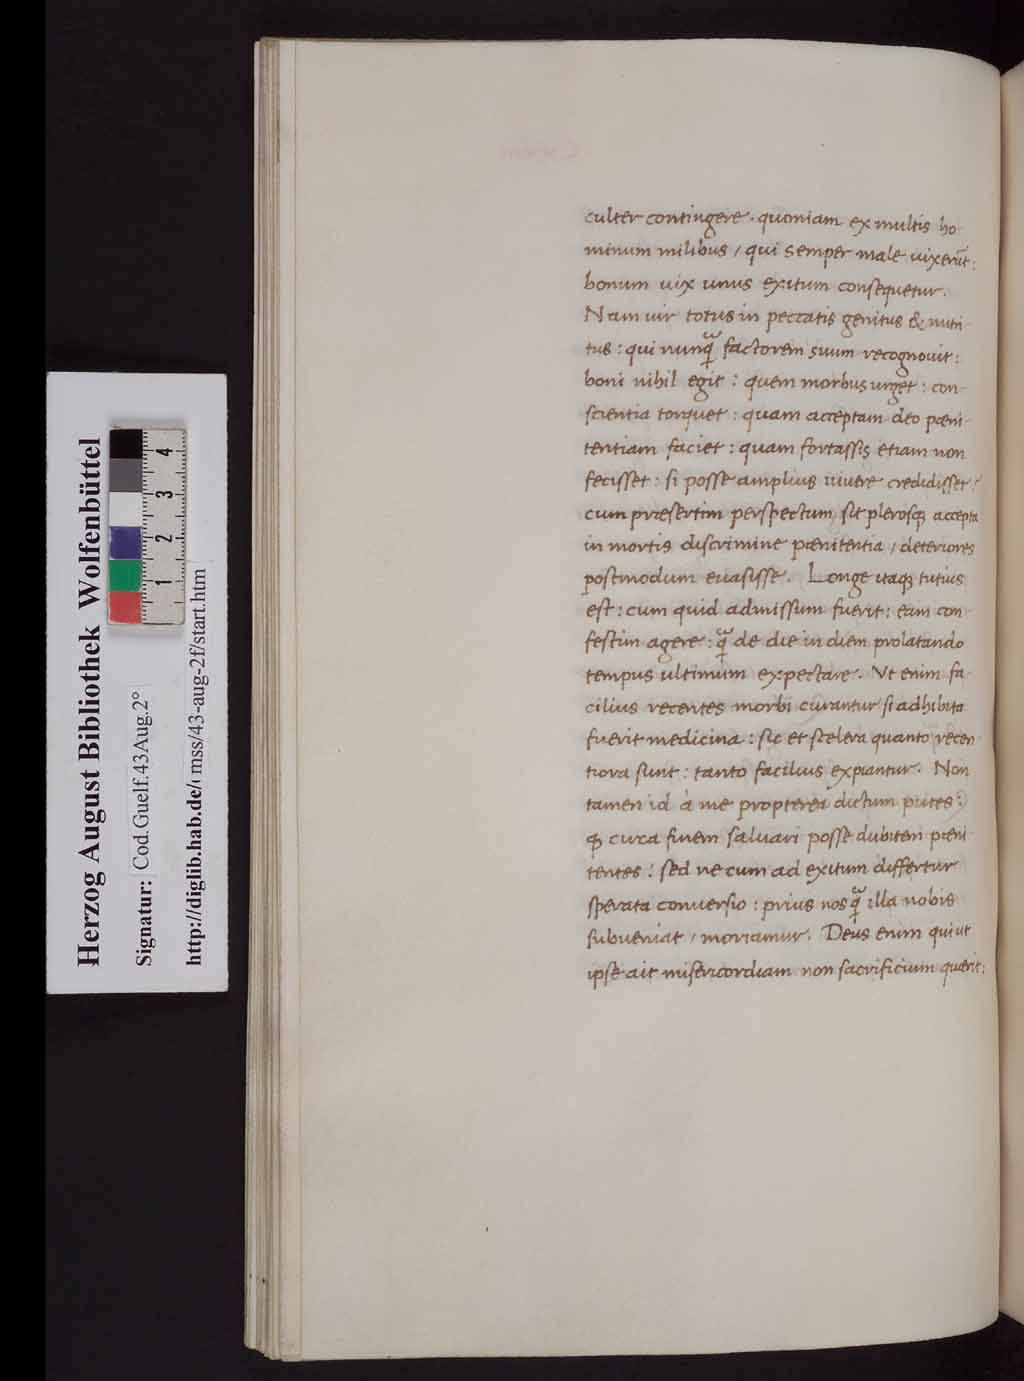 culter contingere. quoniam ex multis ho-
minum milibus / qui semper male uixerūt:
bonum uix unus exitum consequetur.
Nam uir totus in peccatis genitus & nutri-
tus: qui nunq̃ factorem suum recognouit:
boni nihil egit: quem morbus urget: con-
scientia torquet: quam acceptam deo pœni-
tentiam faciet: quam fortassis etiam non
fecisset: si posse amplius uiuere credidisset?
cum præsertim perspectum sit plerosq; accepta
in mortis discrimine pœnitentia / deteriores
postmodum euasisse. Longe itaq; tutius
est: cum quid admissum fuerit: eam con-
festim agere: q̃ de die in diem prolatando
tempus ultimum expectare. Vt enim fa-
cilius recentes morbi curantur si adhibita
fuerit medicina: sic et scelera quanto recen-
tiora sunt: tanto facilius expiantur. Non
tamen id à me propterea dictum putes:
q; circa finem saluari posse dubitem pœni
tentes: sed ne cum ad exitum differtur
sperata conuersio: prius nos q̃ illa nobis
subueniat / moriamur. Deus enim qui ut
ipse ait misericordiam non sacrificium quærit:
Herzog August Bibliothek Wolfenbüttel
Signatur: Cod.Guelf.43Aug.2°
http://diglib.hab.de/ mss/43-aug-2f/start.htm
1 2 3 4